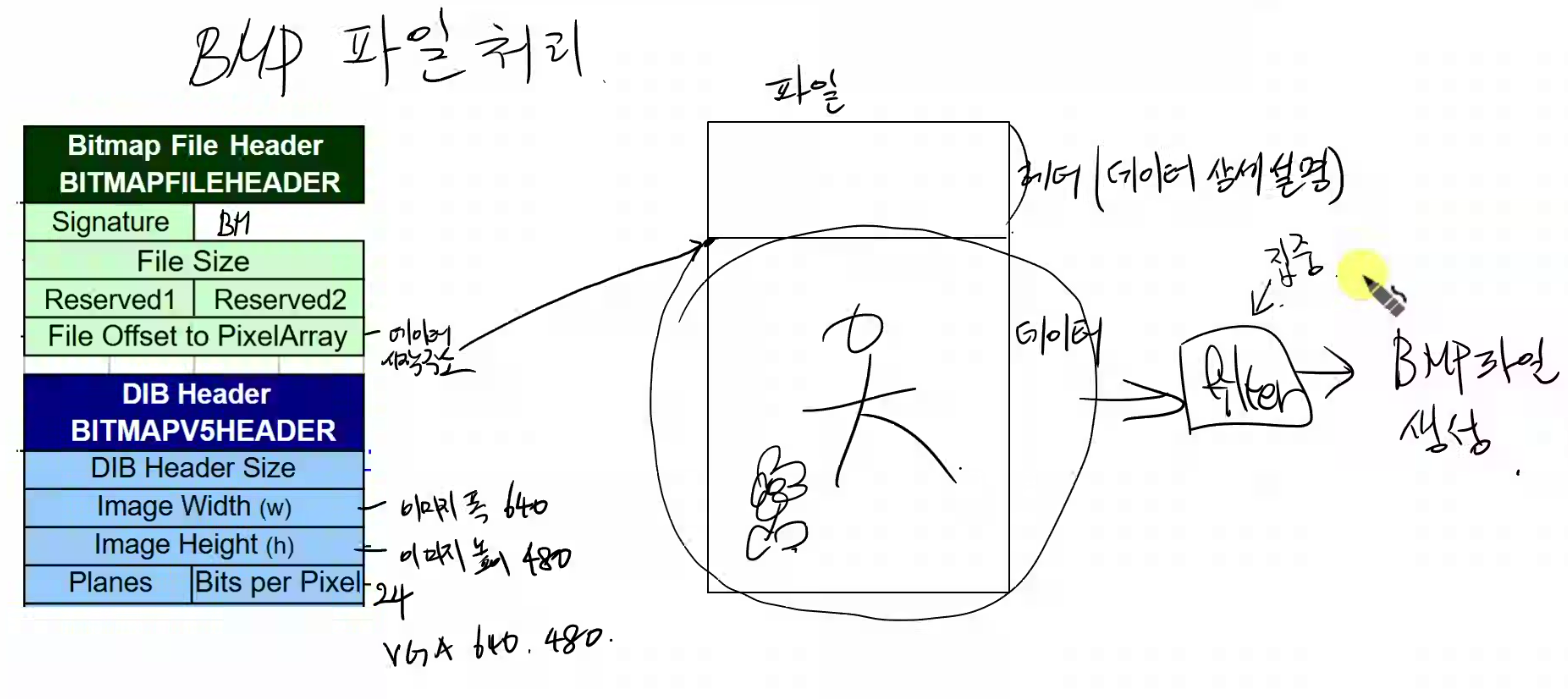 BMP 파일 처리
Bitmap File Header
BITMAPFILEHEADER
Signature BM
File Size
Reserved1 Reserved2
File Offset to PixelArray
데이터
DIB Header
BITMAPV5HEADER
DIB Header Size
Image Width (w)
이미지 폭 640
Image Height (h)
이미지 높이 480
Planes Bits per Pixel
24
VGA 640. 480.
파일
헤더 (데이터 상세 설명)
데이터
집중.
filter
BMP 파일
생성.